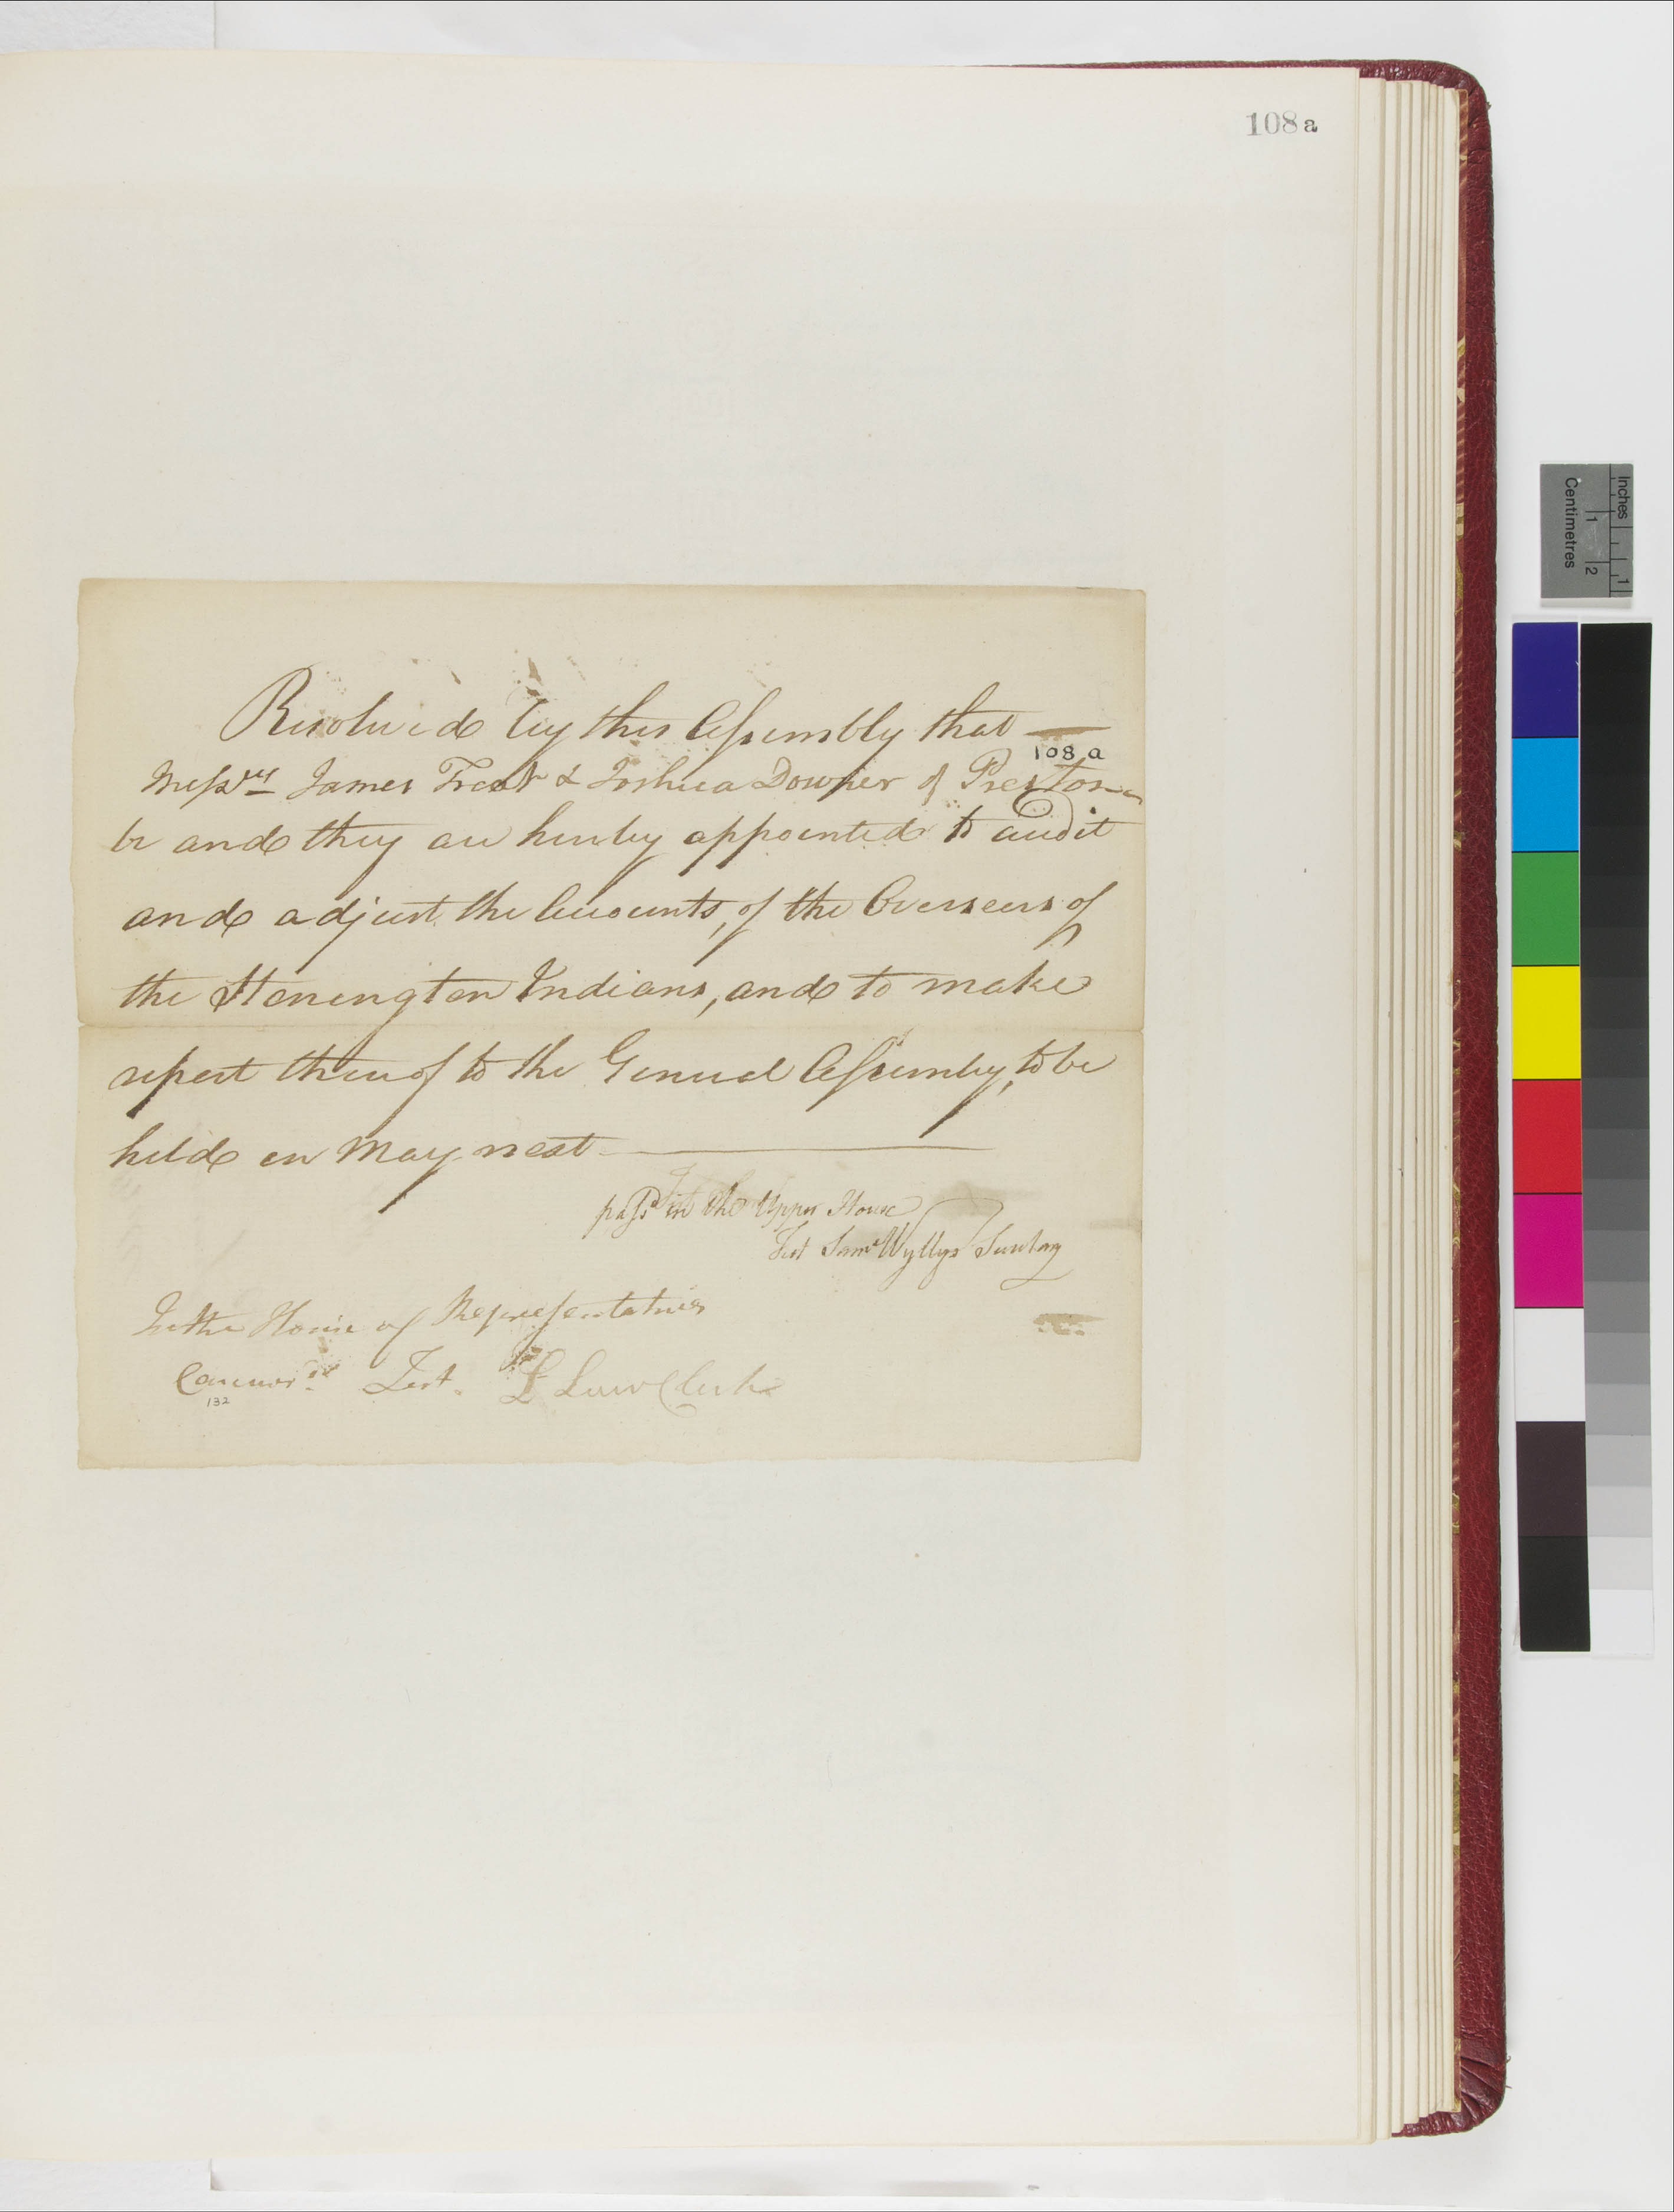 108 a
Resolved by this Assembly that —
108 a
Messrs James Treat & Joshua Downer of Preston
be and they are hereby appointed to audit
and adjust the Accounts, of the Overseers of
the Stonington Indians, and to make
report thereof to the General Assemby, to be
held in May next —
passd in the Upper House
Test Saml Wyllys Secretary
In the House of Representatives
Concurd. Test. Law Clerk
132
Inches 1
Centimetres 1 2